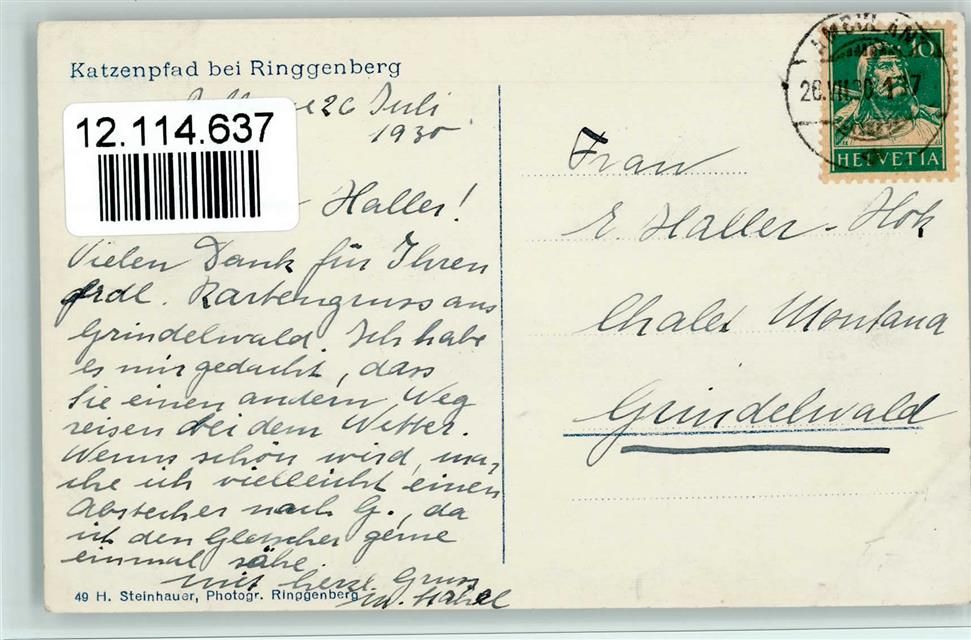 Katzenpfad bei Ringgenberg
26 Juli
1930
12.114.637
Haller!
Vielen Dank für Ihren
frdl. Kartengruss aus
Grindelwald. Ich habe
es mir gedacht, dass
Sie einen andern Weg
reisen bei dem Wetter.
Wenns schön wird, ma-
che ich vielleicht einen
Abstecher nach G., da
ich den Gletscher gerne
einmal sähe.
mit herzl. Gruss
49 H. Steinhauer, Photogr. Ringgenberg
AMBULANT
26.VII.30
10
HELVETIA
Frau
E. Haller-Hok
Chalet Montana
Grindelwald